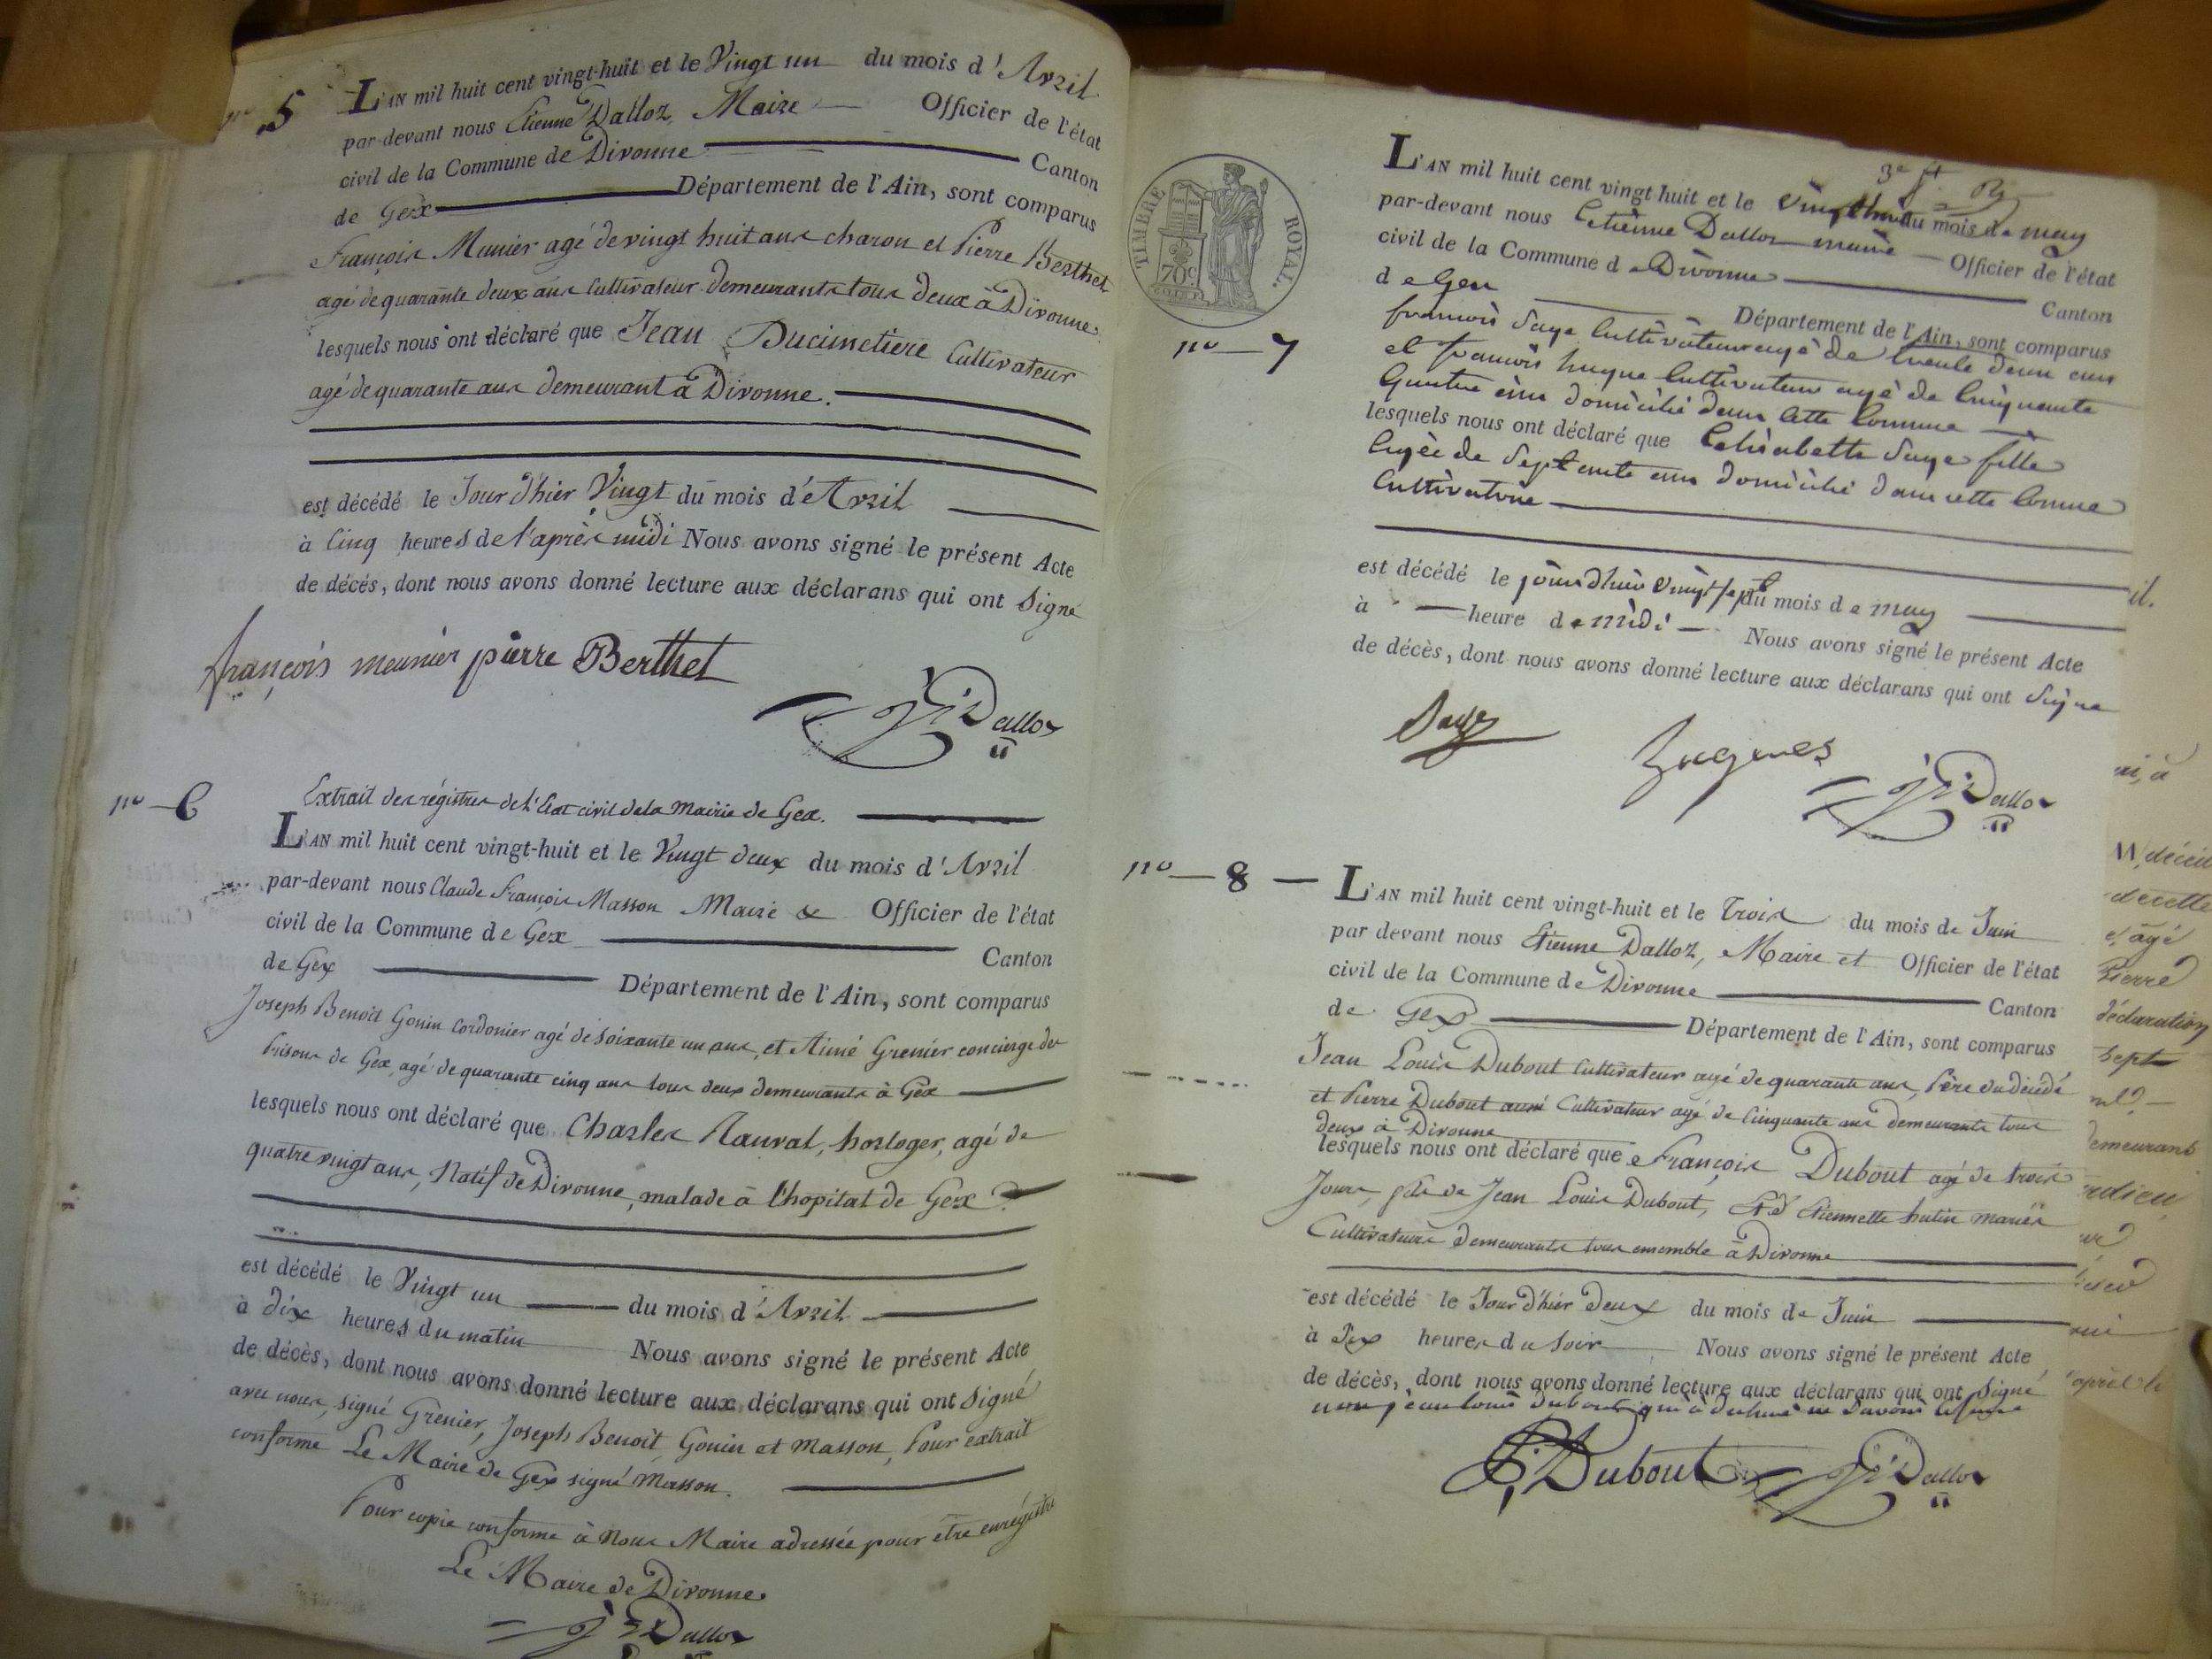 5
L'AN mil huit cent vingt-huit et le Vingt un du mois d'Avril
par-devant nous Etienne Dalloz, Maire Officier de l'état
civil de la Commune de Divonne Canton
de Gex Département de l'Ain, sont comparus
François Munier agé de vingt huit ans charon et Pierre Berthet
agé de quarante deux ans Cultivateur demeurants tous deux à Divonne
lesquels nous ont déclaré que Jean Ducimetiere Cultivateur
agé de quarante ans demeurant à Divonne.
est décédé le Jour d'hier Vingt du mois d'Avril
à Cinq heures de l'après midi Nous avons signé le présent Acte
de décés, dont nous avons donné lecture aux déclarans qui ont Signé
françois meunier pierre Berthet
Dalloz
no 6
Extrait des régistres de l'Etat civil de la Mairie de Gex.
L'AN mil huit cent vingt-huit et le Vingt deux du mois d'Avril
par-devant nous Claude François Masson Maire & Officier de l'état
civil de la Commune de Gex Canton
de Gex Département de l'Ain, sont comparus
Joseph Benoit Gonin Cordonier agé de Soixante un ans, et Aimé Grenier concierge des
Prisons de Gex, agé de quarante cinq ans tous deux demeurants à Gex
lesquels nous ont déclaré que Charles Rauval, horloger, agé de
quatre vingt ans, Natif de Divonne, malade à l'hopital de Gex
est décédé le Vingt un du mois d'Avril
à dix heures du matin Nous avons signé le présent Acte
de décès, dont nous avons donné lecture aux déclarans qui ont Signé
avec nous, signé Grenier, Joseph Benoit Gonin et Masson, Pour extrait
conforme Le Maire de Gex signé Masson.
Pour copie conforme à Nous Maire adressée pour être enrégistré
Le Maire de Divonne
Dalloz
TIMBRE ROYAL.
70c
3e ft
no 7
L'AN mil huit cent vingt huit et le vingt huit du mois de may
par-devant nous Etienne Dalloz maire Officier de l'état
civil de la Commune de Divonne Canton
de Gex Département de l'Ain, sont comparus
francois Saye Cultivateur agé de trente deux ans
et francois hugue Cultivateur agé de Cinquante
Quatre ans domicilié dans Cette Commune
lesquels nous ont déclaré que Elisabette Saye fille
Agée de Septante ans domicilié dans cette Comune
Cultivatrice
est décédé le jour dhier vingt sept du mois de may
à heure de midi Nous avons signé le présent Acte
de décès, dont nous avons donné lecture aux déclarans qui ont Signe
Saye
hugues
Dalloz
no 8
L'AN mil huit cent vingt-huit et le Trois du mois de Juin
par devant nous Etienne Dalloz, Maire et Officier de l'état
civil de la Commune de Divonne Canton
de Gex Département de l'Ain, sont comparus
Jean Louis Dubout Cultivateur agé de quarante ans, Père du décédé
et Pierre Dubout aussi Cultivateur agé de Cinquante ans demeurants tous
deux à Divonne
lesquels nous ont déclaré que François Dubout agé de trois
Jours, fils de Jean Louis Dubout, Et d'Etiennette hutin mariés
Cultivateurs demeurants tous ensemble à Divonne
est décédé le Jour d'hier Deux du mois de Juin
à Dix heures du Soir Nous avons signé le présent Acte
de décès, dont nous avons donné lecture aux déclarans qui ont Signé
non jean louis Dubout qui à déclaré ne savoir le faire
P. Dubout
Dalloz
decette
agé
Pierre
déclaration
sept
demeurant